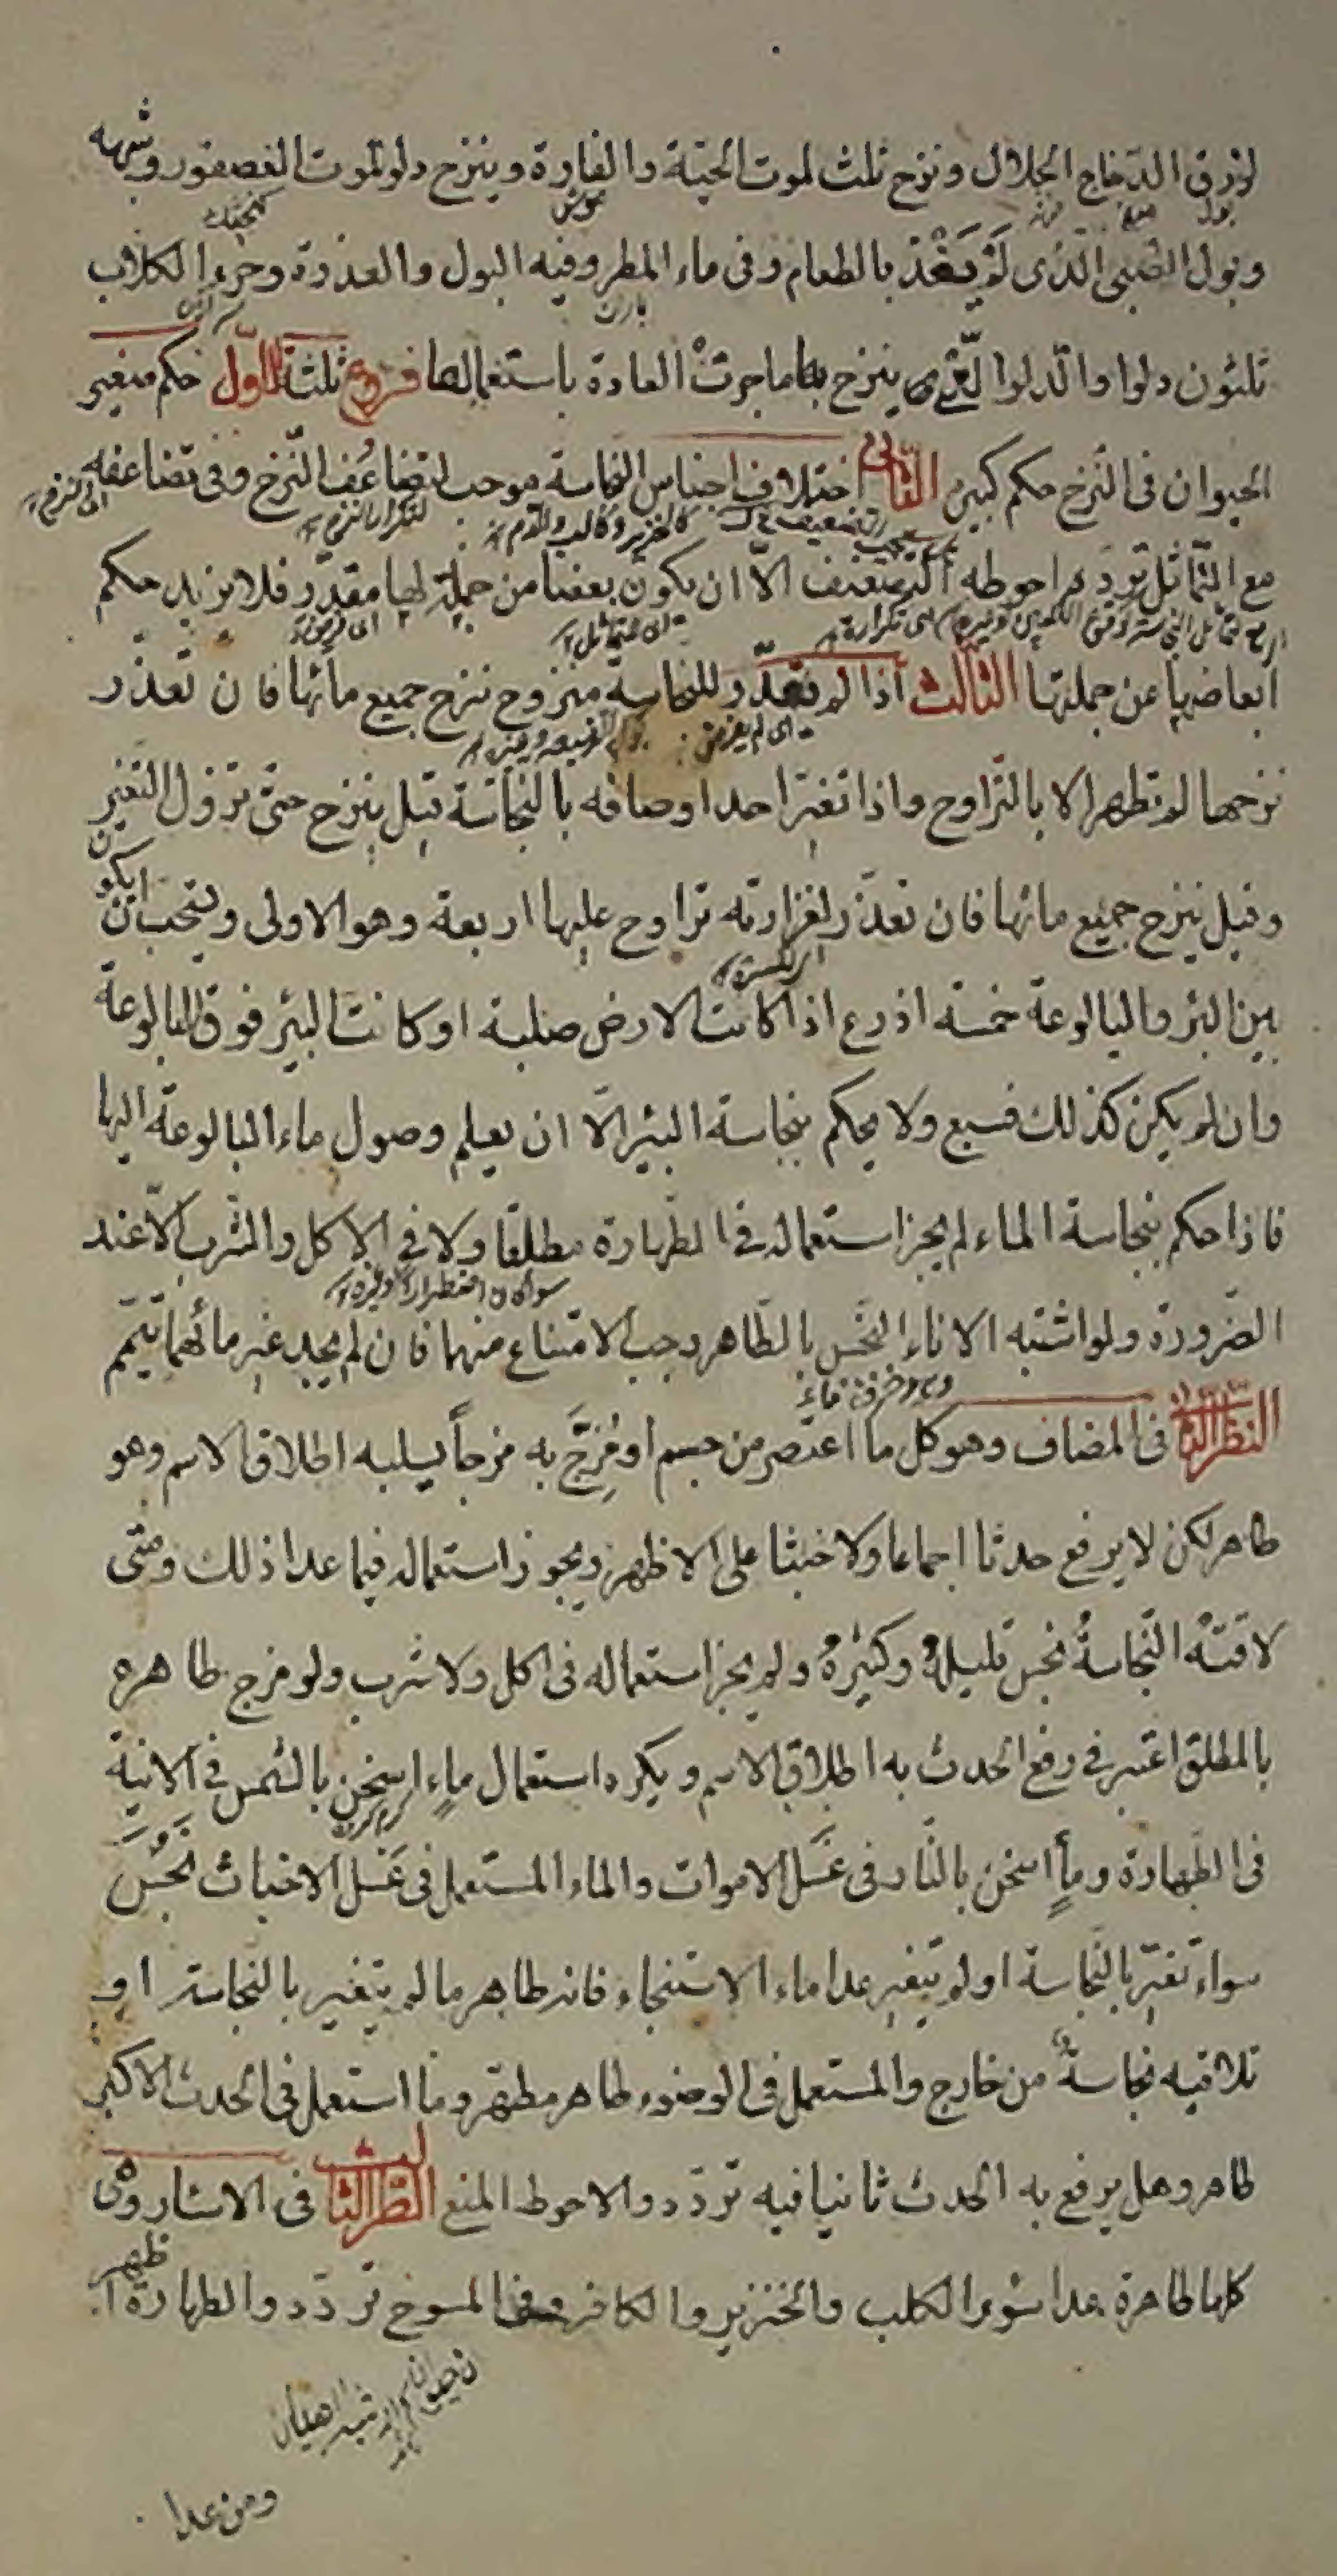 لذرق الدجاج الجلال ونزح ثلث لموت الحيّة والفارة وينزح دلو لموت العصفور وشبهه
بول
موش
كنجشك
وبول الصّبى الّذى لَمْ يَغْتَذ بالطعام وفى ماء المطر وفيه البول والعذرة وخرءا لكلاب
باران
ثلثون دلوا والدلو الّتى ينزح بها ما جرتْ العادة باستعمالها فروع ثلثة الاوّل حكم صغير
الحيوان فى النّزح حكم كبيره الثانى اختلاف اجناس النجاسة موجب لتضاعُف النّزح وفى تضاعفه
اى النزح
لتكرار النزح
كالخنزير والكلب والدم
مع التّماثل تردّد احوطه التضعيف الّا ان يكون بعضا من جملةٍ لها مقدّر فلا يزيد حكم
ابعاضها عن جملتها الثالث اذا لم يقدّر للنجاسة منزوح نزح جميع مائها فان تعذّر
نزحها لم تطهر الا بالتّراوح واذا تغيّر احد اوصافه بالنّجاسة قيل ينزح حتى تزول التغيّر
وقيل ينزح جميع مائها فان تعذّر لغزارته تراوح عليها اربعة وهو الاولى ويستحب ان يكون
اى لكثرة
بين البئر والبالوعة خمسة اذرع اذا كانت الارض صلبة او كانت البئر فوق البالوعة
وان لم يكن كذلك فسبع ولا يحكم بنجاسة البئر الّا ان يعلم وصول ماء البالوعة اليها
فاذا حكم بنجاسة الماء لم يجز استعماله فى الطّهارة مطلقا ولا فى الاكل والشّرب الّا عند
سواء كان اضطرارا او غيره
الضّرورة ولو اشتبه الاناء النّجس بالطّاهر وجب الامتناع منهما فان لم يجد غير مائهما تيمّم
النظر الثانى فى المضاف وهو كل ما اعتصر من جسم او مُزِجَ به مزجاً يسلبه اطلاق الاسم وهو
طاهر لكن لا يرفع حدثا اجماعا ولا خبثا على الاظهر ويجوز استعماله فيما عدا ذلك ومتى
لاقته النّجاسةُ نجس قليلهُ وكثيرهُ ولم يجز استعماله فى اكل ولا شرب ولو مزج طاهره
بالمطلق اعتبر فى رفع الحدث به اطلاق الاسم ويكره استعمال ماءٍ اسخن بالشّمس فى الانية
فى الطّهارة وماءٍ اسخن بالنّار فى غَسَل الاموات والماء المستعمل فى غَسَل الاخباث نَجَسٌ
سواء تغيّر بالنّجاسة او لم يتغيّر عدا ماء الاستنجاء فانه طاهر ما لم يتغير بالنجاسة او
تلاقيه نجاسةٌ من خارج والمستعمل فى الوضوء طاهر مطهّر وما استعمل فى الحدث الاكبر
طاهر وهل يرفع به الحدث ثانيا فيه تردّد والاحوط المنع النّظر الثالث فى الاسئار وهى
كلها طاهرة عدا سؤر الكلب والخنزير والكافر وفى المسوخ تردّد والطهارة اظهر
ومن عدا